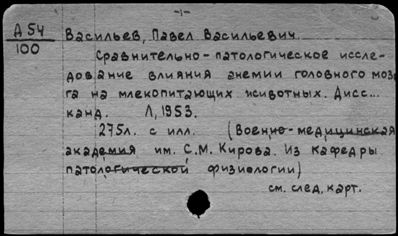 -1-
А 54
100
Васильев, Павел Васильевич.
Сравнительно-патологическое иссле-
дование влияния анемии головного моз-
га на млекопитающих животных. Дисс...
канд. Л, 1953.
275л. с илл. (Военно-медицинская
академия им. С.М. Кирова. Из кафедры
патологической физиологии)
см. след. карт.